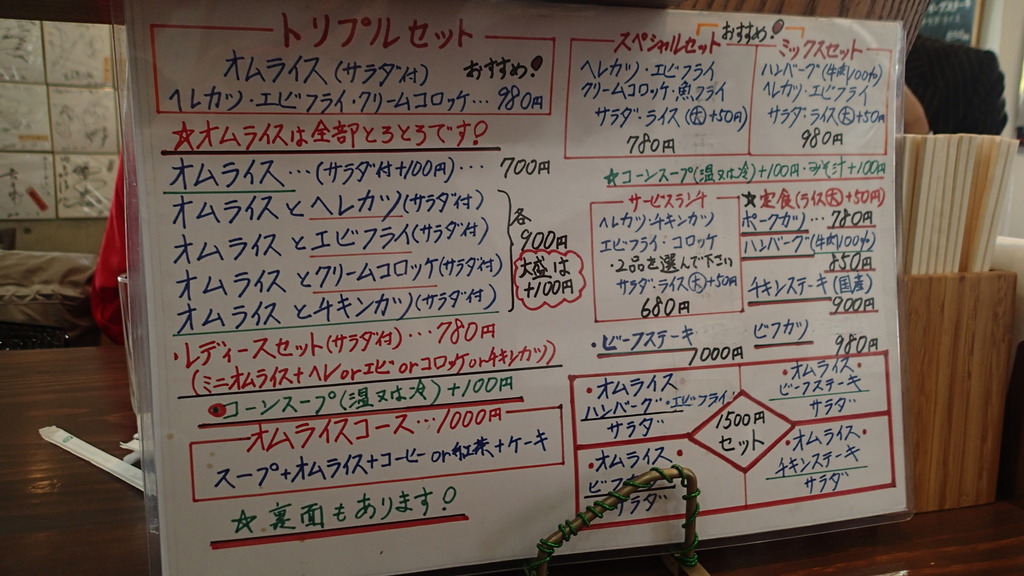 トリプルセット
オムライス(サラダ付) おすすめ!
ヘレカツ・エビフライ・クリームコロッケ…980円
☆オムライスは全部とろとろです!
オムライス…(サラダ付+100円)…700円
オムライスとヘレカツ(サラダ付)
オムライスとエビフライ(サラダ付)
オムライスとクリームコロッケ(サラダ付)
オムライスとチキンカツ(サラダ付)
各
900円
大盛は
+100円
・レディースセット(サラダ付)…780円
(ミニオムライス+ヘレorエビorコロッケorチキンカツ)
コーンスープ(温又は冷)+100円
オムライスコース…1000円
スープ+オムライス+コーヒーor紅茶+ケーキ
☆裏面もあります!
おすすめ!
スペシャルセット
ヘレカツ・エビフライ
クリームコロッケ・魚フライ
サラダ・ライス(大+50円)
780円
ミックスセット
ハンバーグ(牛肉100%)
ヘレカツ・エビフライ
サラダ・ライス(大+50円)
980円
☆コーンスープ(温又は冷)+100円・みそ汁+100円
サービスランチ
ヘレカツ・チキンカツ
エビフライ・コロッケ
・2品を選んで下さい
サラダ・ライス(大)+50円
680円
★定食(ライス大+50円)
ポークカツ…780円
ハンバーグ(牛肉100%)
850円
チキンステーキ(国産)
900円
・ビーフステーキ
1000円
ビフカツ
980円
・オムライス
ハンバーグ・エビフライ
サラダ
・オムライス
ビーフステーキ
サラダ
1500円
セット
・オムライス
サラダ
・オムライス・
チキンステーキ
サラダ